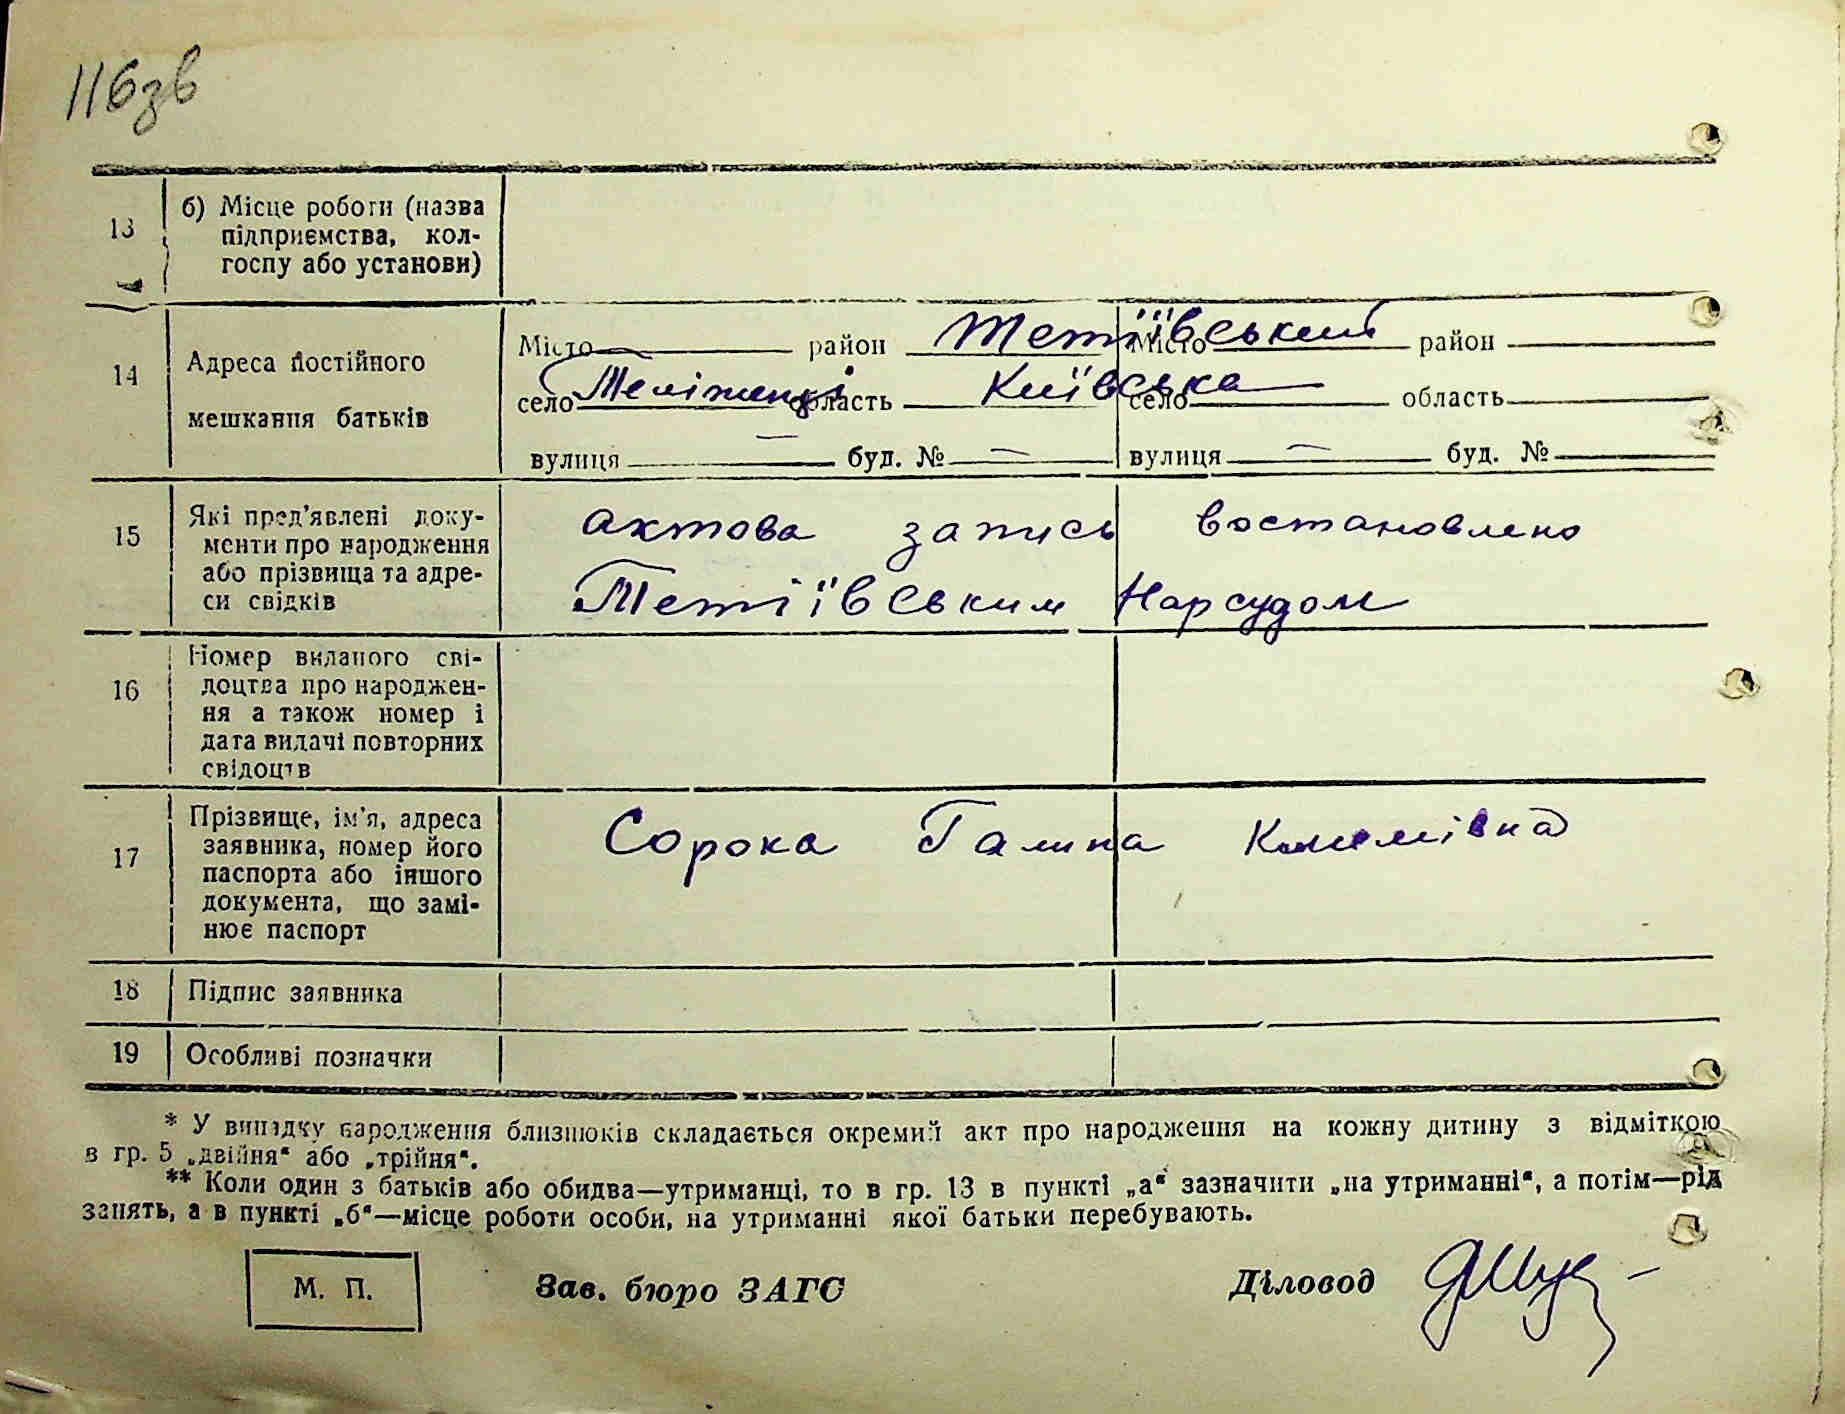 116зв
13 б) Місце роботи (назва
підприємства, кол-
госпу або установи)
14 Адреса постійного
мешкання батьків
Місто район Тетіївський Місто район
село Теліженці область Київська село область
вулиця — буд. № — вулиця — буд. №
15 Які пред'явлені доку-
менти про народження
або прізвища та адре-
си свідків
актова запись востановлено
Тетіївським Нарсудом
16 Номер виданого сві-
доцтва про народжен-
ня а також номер і
дата видачі повторних
свідоцтв
17 Прізвище, ім'я, адреса
заявника, номер його
паспорта або іншого
документа, що замі-
нює паспорт
Сорока Галина
18 Підпис заявника
19 Особливі позначки
* У випадку народження близнюків складається окремий акт про народження на кожну дитину з відміткою
в гр. 5 „двійня“ або „трійня“.
** Коли один з батьків або обидва—утриманці, то в гр. 13 в пункті „а“ зазначити „на утриманні“, а потім—рід
занять, а в пункті „б“—місце роботи особи, на утриманні якої батьки перебувають.
М. П. Зав. бюро ЗАГС Діловод